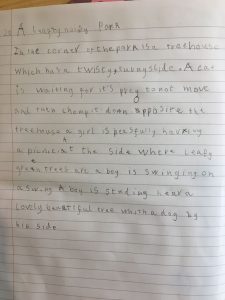 A leafy noisy Park
In the corner of the park is a treehouse
which has a twisty, curvy slide. A cat
is waiting for it's prey to not move
and then chomp it down opposite the
treehouse a girl is peasfully having
a picnic at the side where leafy
green trees are a boy is swinging on
a swing A boy is stnding near a
lovely beautiful tree whith a dog by
his side